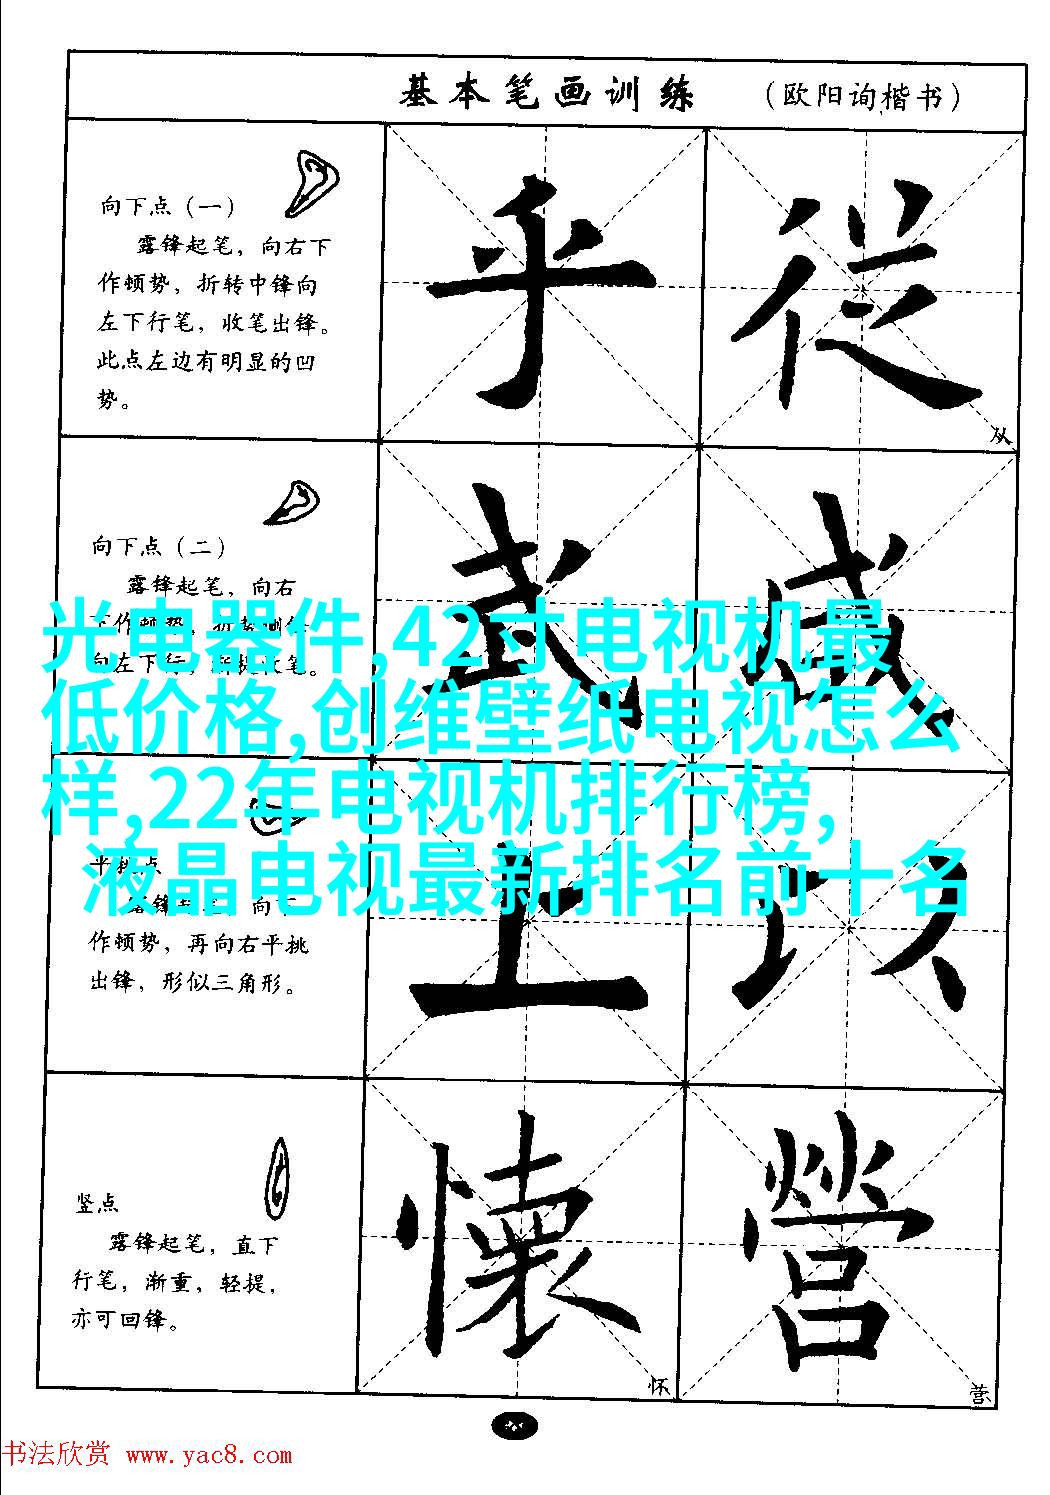 基本笔画训练 （欧阳询楷书）
向下点（一）
露锋起笔，向右下
作顿势，折转中锋向
左下行笔，收笔出锋。
此点左边有明显的凹
势。
乎 從
从
向下点（二）
露锋起笔，向右
下作顿势，
向左下行，
收笔。
武
光电器件,42寸电视机最
低价格,创维壁纸电视怎么
样,22年电视机排行榜,
液晶电视最新排名前十名
平挑点
露锋起笔，向下
作顿势，再向右平挑
出锋，形似三角形。
上 以
竖点
露锋起笔，直下
行笔，渐重，轻提，
亦可回锋。
懷 營
怀 营
书法欣赏 www.yac8.com